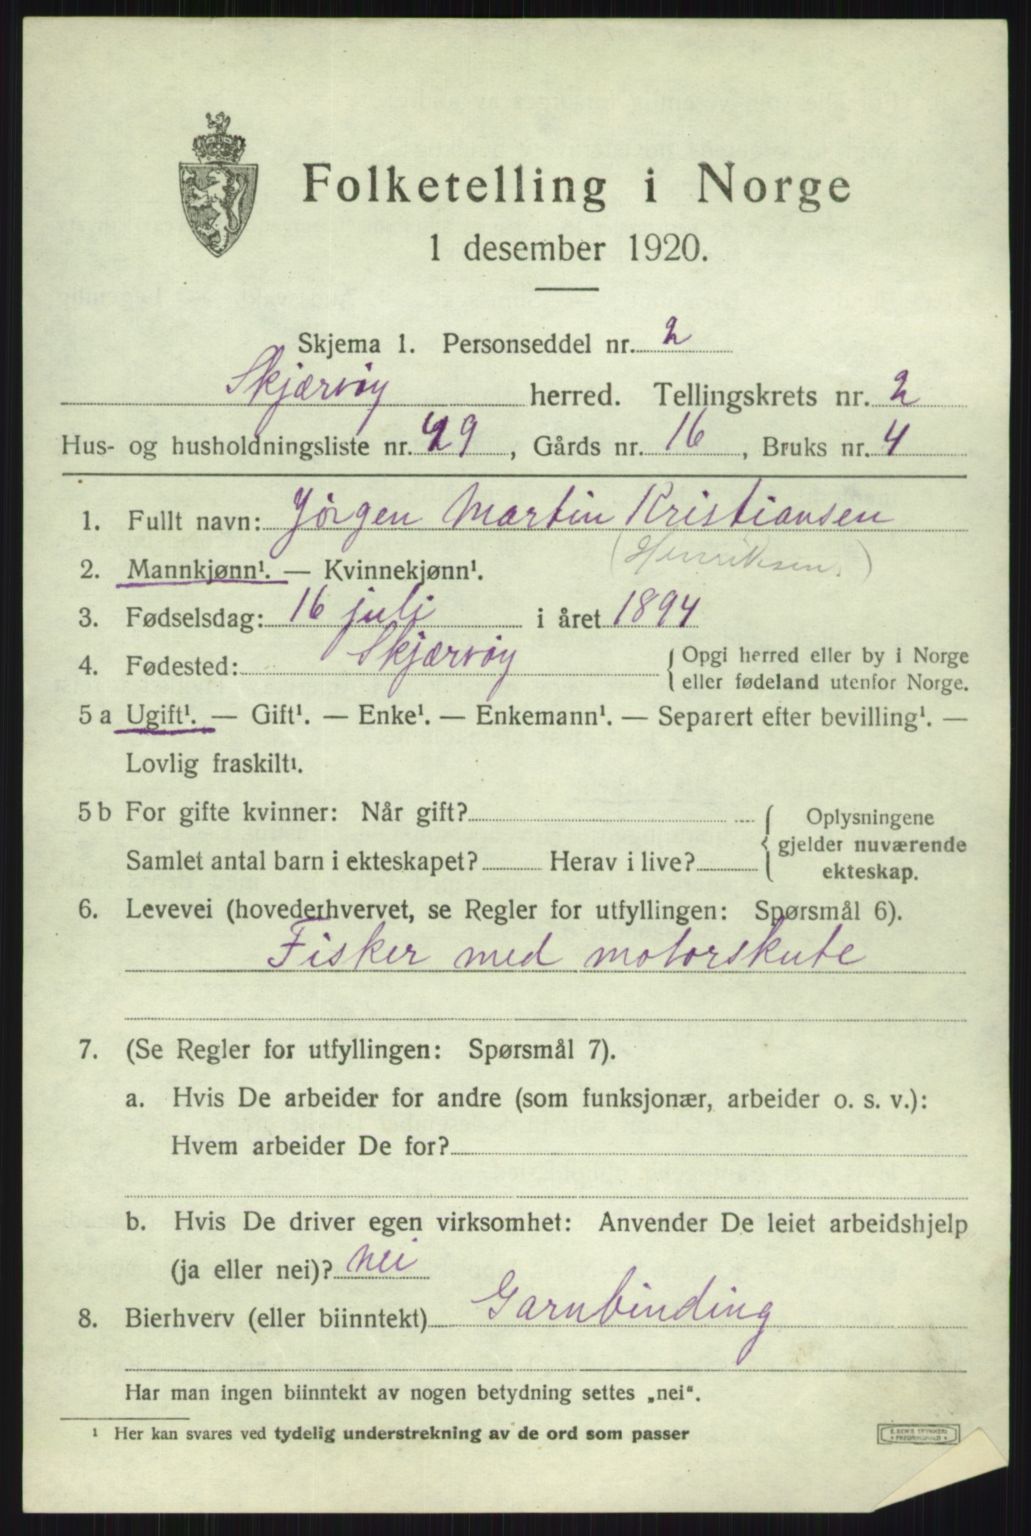 Folketelling i Norge
1 desember 1920.
Skjema 1. Personseddel nr. 2
Skjærvöy herred. Tellingskrets nr. 2
Hus- og husholdningsliste nr. 49, Gårds nr. 16, Bruks nr. 4
1. Fullt navn: Jörgen Martin Kristiansen
(Henriksen.)
2. Mannkjønn¹. — Kvinnekjønn¹.
3. Fødselsdag: 16 juli i året 1894
4. Fødested: Skjærvöy { Opgi herred eller by i Norge
eller fødeland utenfor Norge.
5 a Ugift¹. — Gift¹. — Enke¹. — Enkemann¹. — Separert efter bevilling¹. —
Lovlig fraskilt¹.
5 b For gifte kvinner: Når gift? Oplysningene
gjelder nuværende
Samlet antal barn i ekteskapet? Herav i live?
ekteskap.
6. Levevei (hovederhvervet, se Regler for utfyllingen: Spørsmål 6).
Fisker med motorskute
7. (Se Regler for utfyllingen: Spørsmål 7).
a. Hvis De arbeider for andre (som funksjonær, arbeider o. s. v.):
Hvem arbeider De for?
b. Hvis De driver egen virksomhet: Anvender De leiet arbeidshjelp
(ja eller nei)? nei
8. Bierhverv (eller biinntekt) Garnbinding
Har man ingen biinntekt av nogen betydning settes „nei".
¹ Her kan svares ved tydelig understrekning av de ord som passer